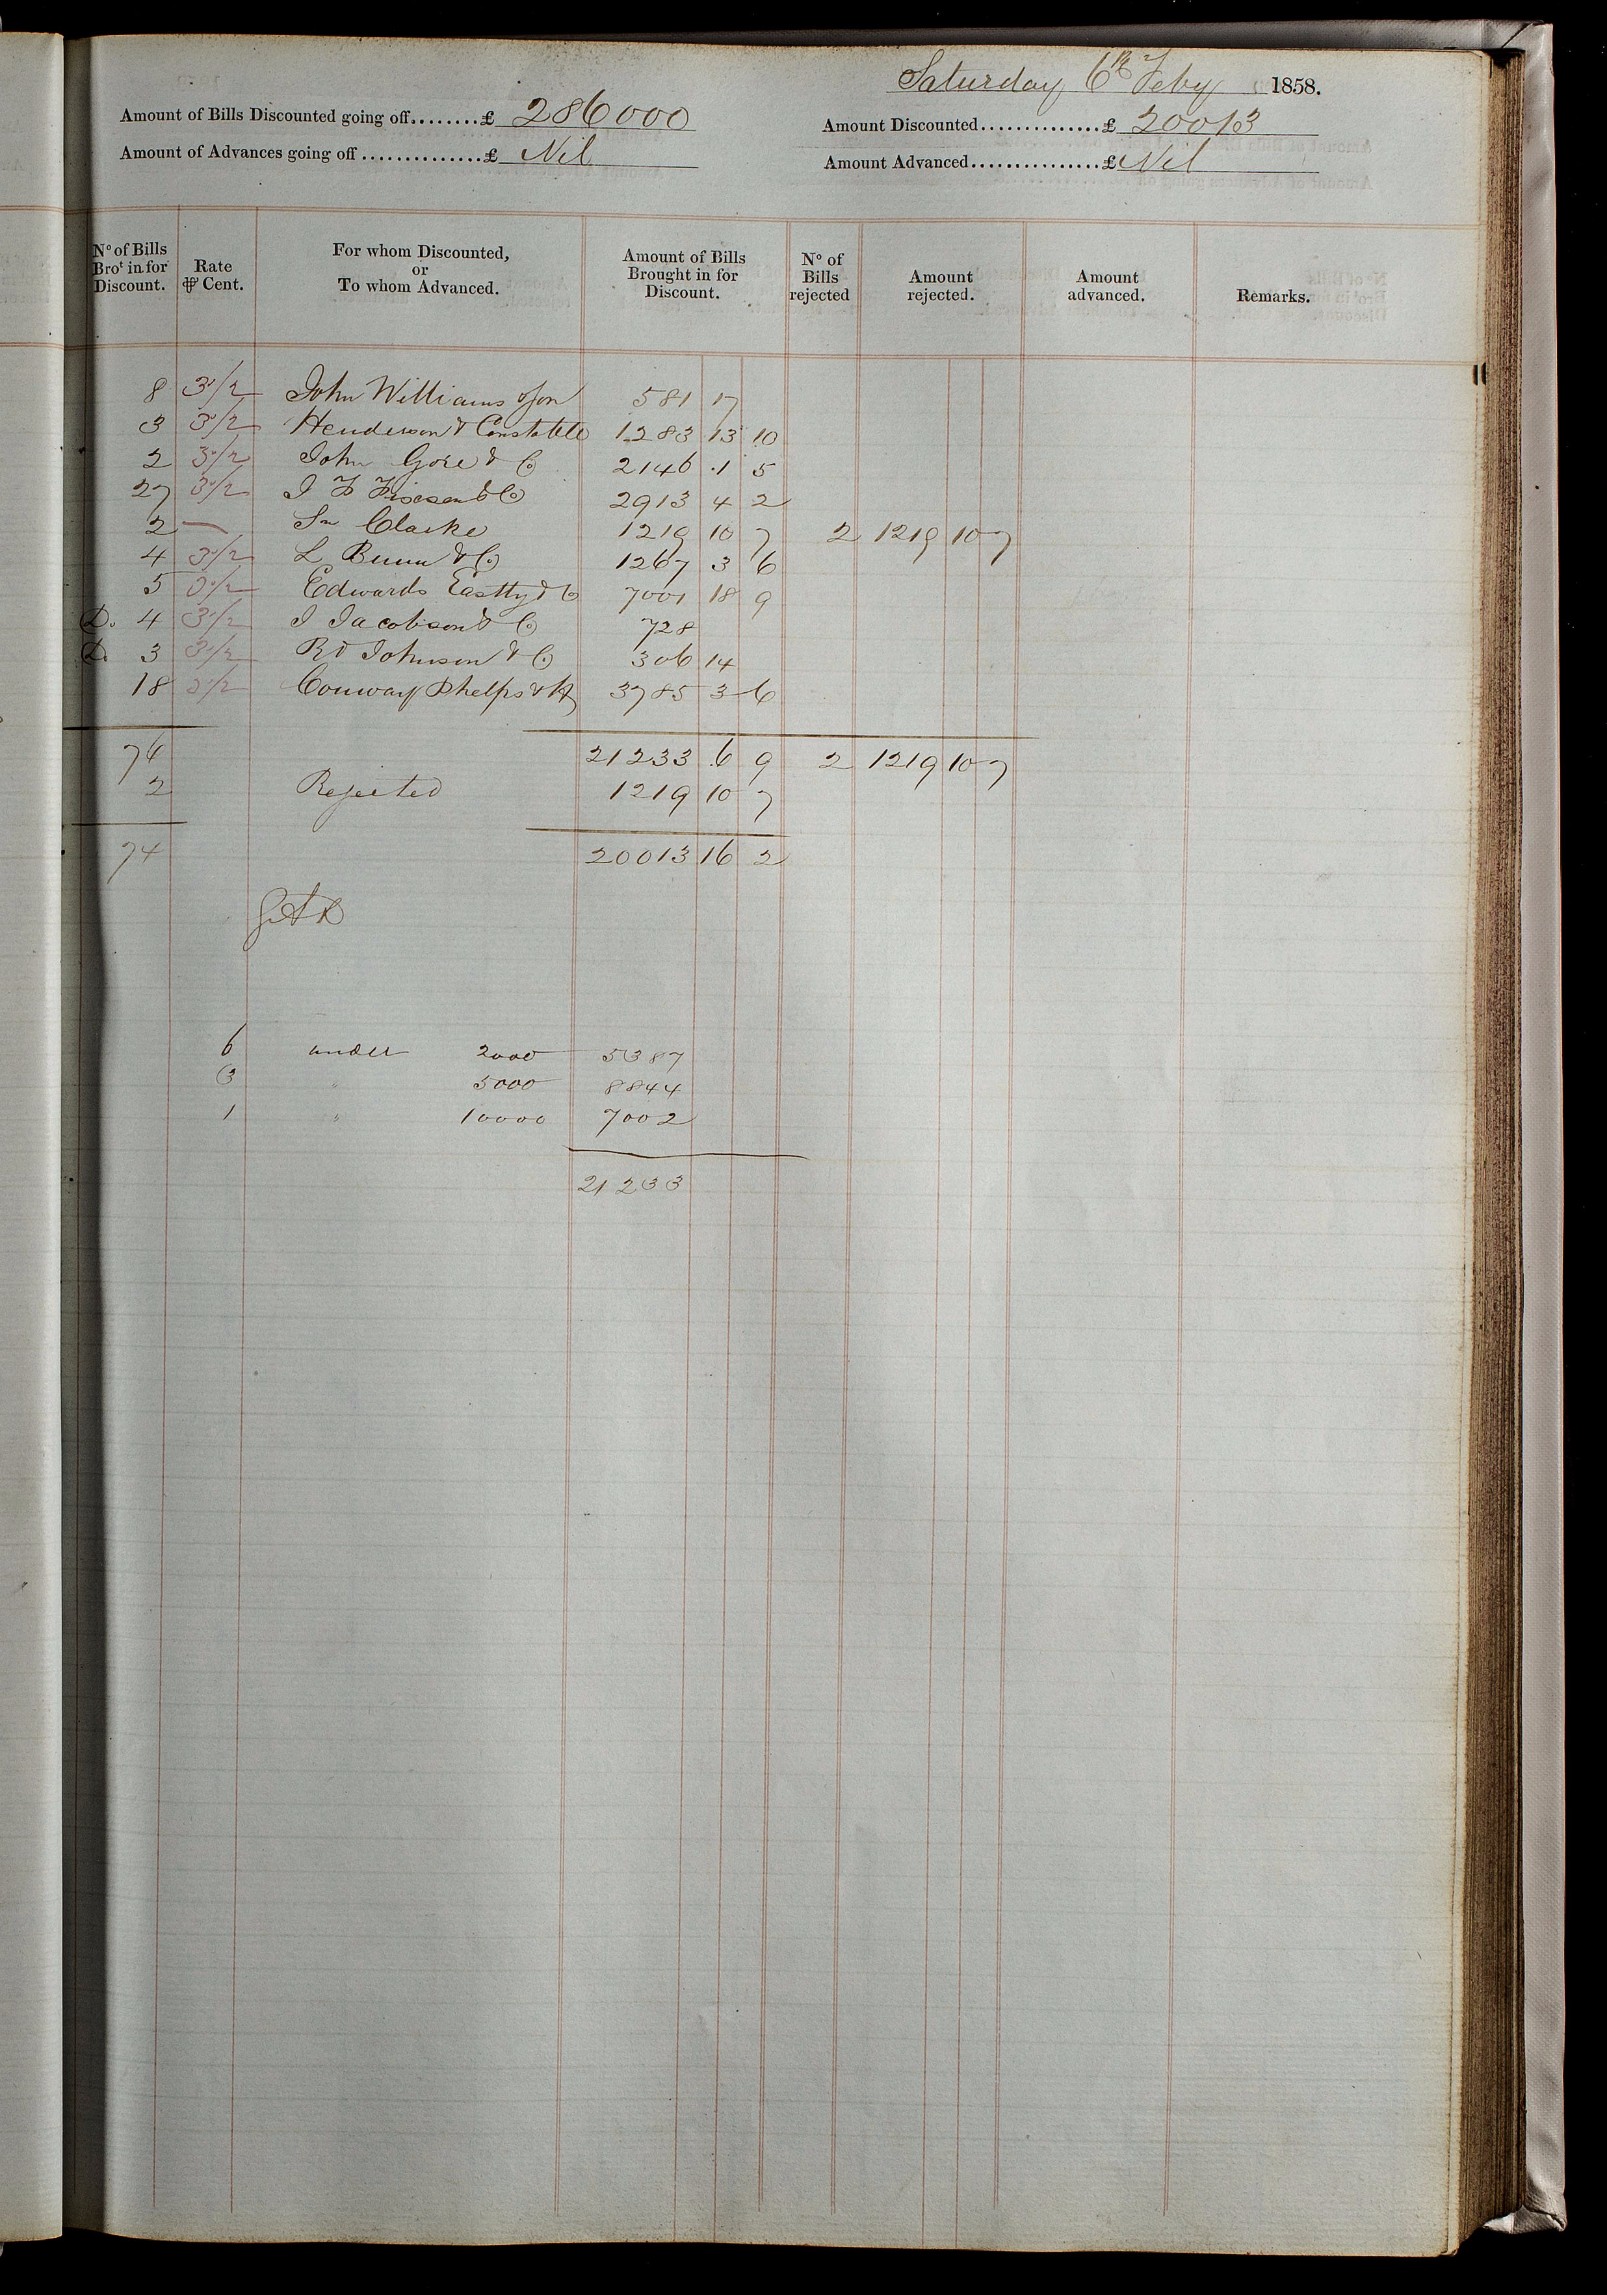 Saturday 6th Feby 1858.
Amount of Bills Discounted going off........£ 286000
Amount Discounted..............£ 20013
Amount of Advances going off..............£ Nil
Amount Advanced................£ Nil
No of Bills Brot in for Discount. | Rate ⅌ Cent. | For whom Discounted, or To whom Advanced. | Amount of Bills Brought in for Discount. | No of Bills rejected | Amount rejected. | Amount advanced. | Remarks.
8 3 1/2 John Williams & Son 581 17
3 3 1/2 Henderson & Constable 1283 13 10
2 3 1/2 John Gore & Co 2146 .1 5
27 3 1/2 & Co 2913 4 2
2 — Clarke 1219 10 7 2 1219 10 7
4 3 1/2 L Bunn & Co 1267 3 6
5 3 1/2 Edwards Eastty & Co 7001 18 9
D. 4 3 1/2 I Jacobson & Co 728
D. 3 3 1/2 Rd Johnson & Co 306 14
18 3 1/2 Conway Phelps & 3785 3 6
76 21233 .6 9 2 1219 10 7
2 Rejected 1219 10 7
74 20013 16 2
6 under 2000 5387
3 " 5000 8844
1 " 10000 7002
21233